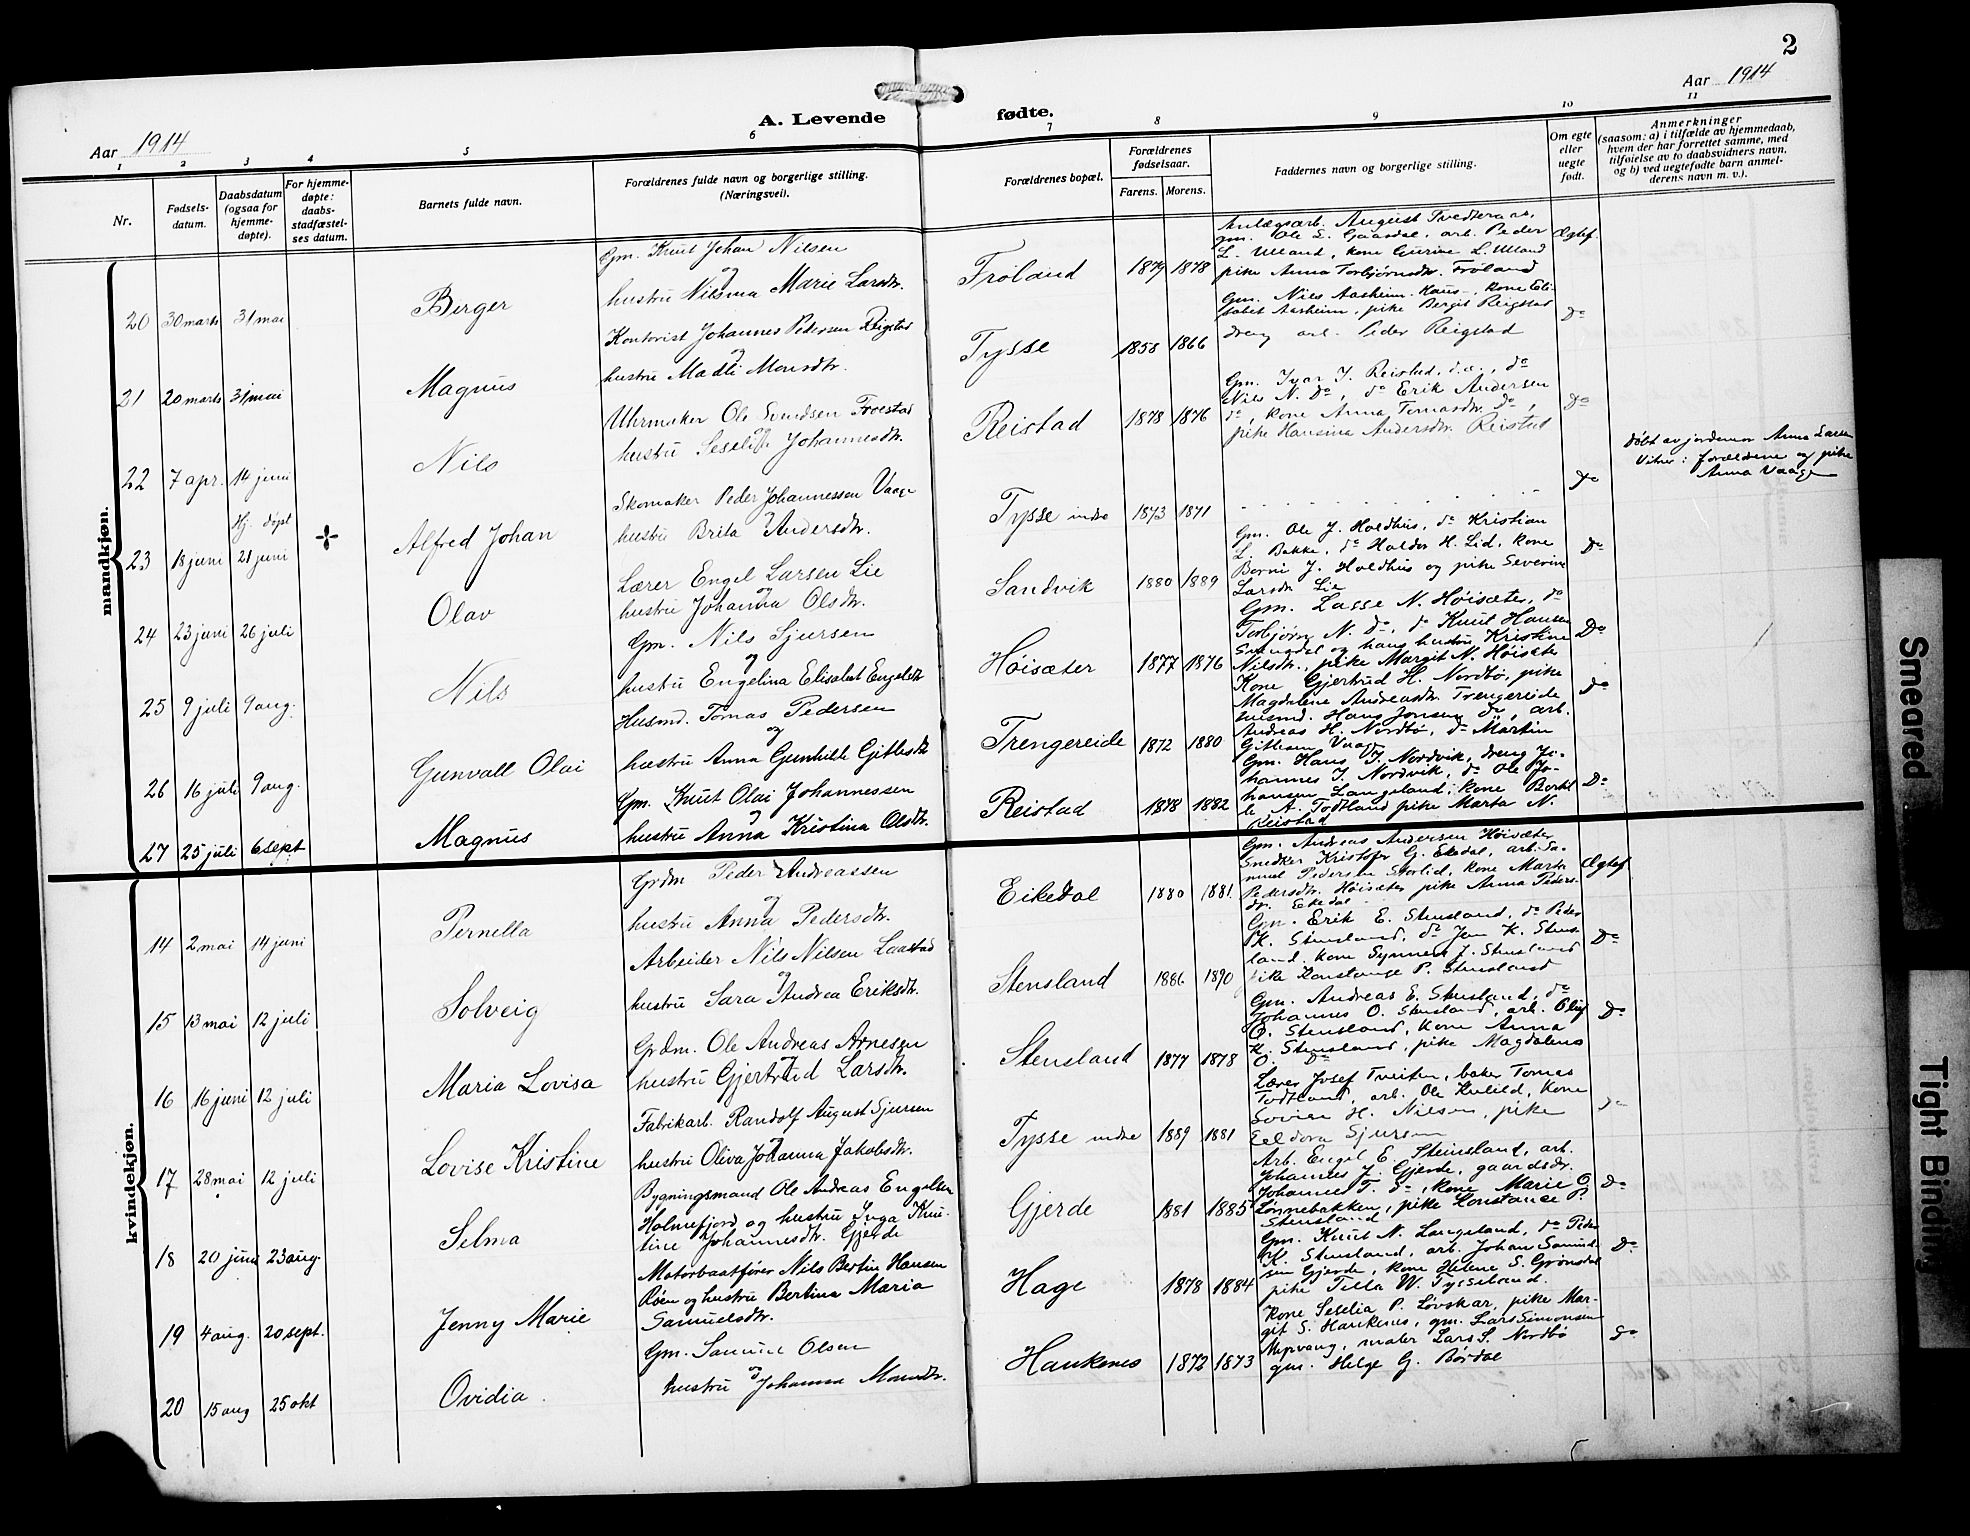 2
Aar 1914
Aar 1914
A. Levende fødte.
1 2 3 4 5 6 7 8 9 10 11
Nr.
Fødsels-
datum.
Daabsdatum
(ogsaa for
hjemme-
døpte).
For hjemme-
døpte:
daabs-
stadfæstel-
ses datum.
Barnets fulde navn.
Forældrenes fulde navn og borgerlige stilling.
(Næringsvei).
Forældrenes bopæl.
Forældrenes
fødselsaar.
Farens. Morens.
Faddernes navn og borgerlige stilling.
Om egte
eller
uegte
født.
Anmerkninger
(saasom: a) i tilfælde av hjemmedaab,
hvem der har forrettet samme, med
tilføielse av to daabsvidners navn,
og b) ved uegtefødte barn anmel-
derens navn m. v.).
mandkjøn.
20 30 marts 31 mai Berger
Gm. Knut Johan Nilsen
og
hustru Nilsina Marie Larsdtr.
Frøland 1879 1878
Anlægsarb. August Tvedteraas,
gm. Ole S. Gaasdal, arb. Peder
L. Ulland, kone Gurine L. Ulland
pike Anna Torbjørnsdtr. Frøland
Ægtef.
21 20 marts 31 mai Magnus
Kontorist Johannes Pedersen Reigstad
og
hustru Madli Monsdtr.
Tysse 1858 1866
Gm. Nils Aasheim. Haus, kone Eli-
sabet Aasheim, pike Bergit Reigstad
dreng arb. Peder Reigstad
do
22 7 apr. 14 juni Nils
Uhrmaker Ole Svendsen Froestad
og
hustru Seselie Johannesdtr.
Reistad 1878 1876
Gm. Ivar I. Reistad, d.æ., do
Nils N. do, do Erik Andersen
do, kone Anna Tomasdtr. do,
pike Hansina Andersdtr. Reistad
do
23 18 juni Hj. døpt
21 juni Alfred Johan
Skomaker Peder Johannessen Vaage
og
hustru Brita Andersdtr.
Tysse indre 1873 1871
do
døbt av jordemor Anna Larsen
Vitner: forældrene og pike
Anna Vaage
24 23 juni 26 juli Olav
Lærer Engel Larsen Lie
og
hustru Johanna Olsdtr.
Sandvik 1880 1889
Gm. Ole J. Holdhus, do Kristian
L. Bakke, do Haldor H. Lid, kone
Borni J. Holdhus og pike Severine
Larsdtr Lie
do
25 9 juli 9 aug. Nils
Gm. Nils Sjursen
og
hustru Engelina Elisabet Engelsdtr
Høisæter 1877 1876
Gm. Lasse N. Høisæter, do
Torbjørn N. do, do Knut Hansen
og hans hustru Kristine
Nilsdtr., pike Margit N. Høisæter
Do
26 16 juli 9 aug. Gunvall Olai
Husmd. Tomas Pedersen
og
hustru Anna Gunhilde Gitlesdtr
Trengereide 1872 1880
Kone Gjertrud H. Nordbø, pike
Magdalene Andreasdtr. Trengereide
husmd. Hans Jonsen do, arb.
Andreas H. Nordbø, do Martin
Gitlesen Vaage
do
27 25 juli 6 sept Magnus
Gm. Knut Olai Johannessen
og
hustru Anna Kristina Olsdtr.
Reistad 1878 1882
Gm. Hans I. Nordvik, dreng Jo-
hannes I. Nordvik, do Ole Jo-
hansen Langeland, kone Berthi-
le A. Todtland pike Marta N.
Reistad
Do
kvindekjøn.
14 2 mai 14 juni Pernella
Grdm. Peder Andreassen
og
hustru Anna Pedersdtr.
Eikedal 1880 1881
Gm. Andreas Andersen Høisæter
Snedker Kristofer G. Ekedal, arb. Sa-
muel Pedersen Storlid, kone Marta
Pedersdtr. Høisæter pike Anna Peders-
dtr. Ekedal
Ægtef
15 13 mai 12 juli Solveig
Arbeider Nils Nilsen Laastad
og
hustru Sara Andrea Eriksdtr.
Stensland 1886 1890
Gm. Erik E. Stensland, do Peder
K. Stensland, do Jon K. Stens-
land, kone Synneva J. Stensland
pike Konstanse P. Stensland
Do
16 16 juni 12 juli Maria Lovisa
Grdm. Ole Andreas Arnesen
og
hustru Gjertrud Larsdtr.
Stensland 1877 1878
Gm. Andreas E. Stensland, do
Johannes O. Stensland, arb. Oluf
O. Stensland, kone Anna
K. Stensland, pike Magdalena
O. do
Do
17 28 mai 12 juli Lovise Kristine
Fabrikarb. Randolf August Sjursen
og
hustru Oliva Johanna Jakobsdtr.
Tysse indre 1889 1881
Lærer Josef Tveiten, baker Tomas
Todtland, arb. Ole Kulild, kone
H. Nilsen, pike
Eeldora Sjursen
do
18 20 juni 23 aug. Selma
Bygningsmand Ole Andreas Engelsen
Holmefjord og hustru Inga Kris-
tine Johannesdtr. Gjerde
Gjerde 1881 1885
Arb. Engel E. Steinsland, arb.
Johannes J. Gjerde, gaardsdr.
Johannes T. do, kone Marie O
Lønnebakken, pike Konstanse P.
Stensland
Do
19 4 aug. 20 sept. Jenny Marie
Motorbaatfører Nils Bertin Hansen
Røen og hustru Bertina Maria
Samuelsdtr.
Hage 1878 1884
Gm. Knut N. Langeland, do Peder
K. Stensland, arb. Johan Samuel-
sen Gjerde, kone Helene S. Grønsdal
pike Tilla W. Tysseland.
Do
20 15 aug 25 okt Ovidia.
Gm. Samuel Olsen
og
hustru Johanna Monsdtr.
Haukenes 1872 1873
Kone Seselia P. Løvskar, pike Mar-
git S. Haukenes, gm. Lars Simonsen
maler Lars S. Nordbø
gm. Helge G. Børdal
do
Smeared
Tight Binding